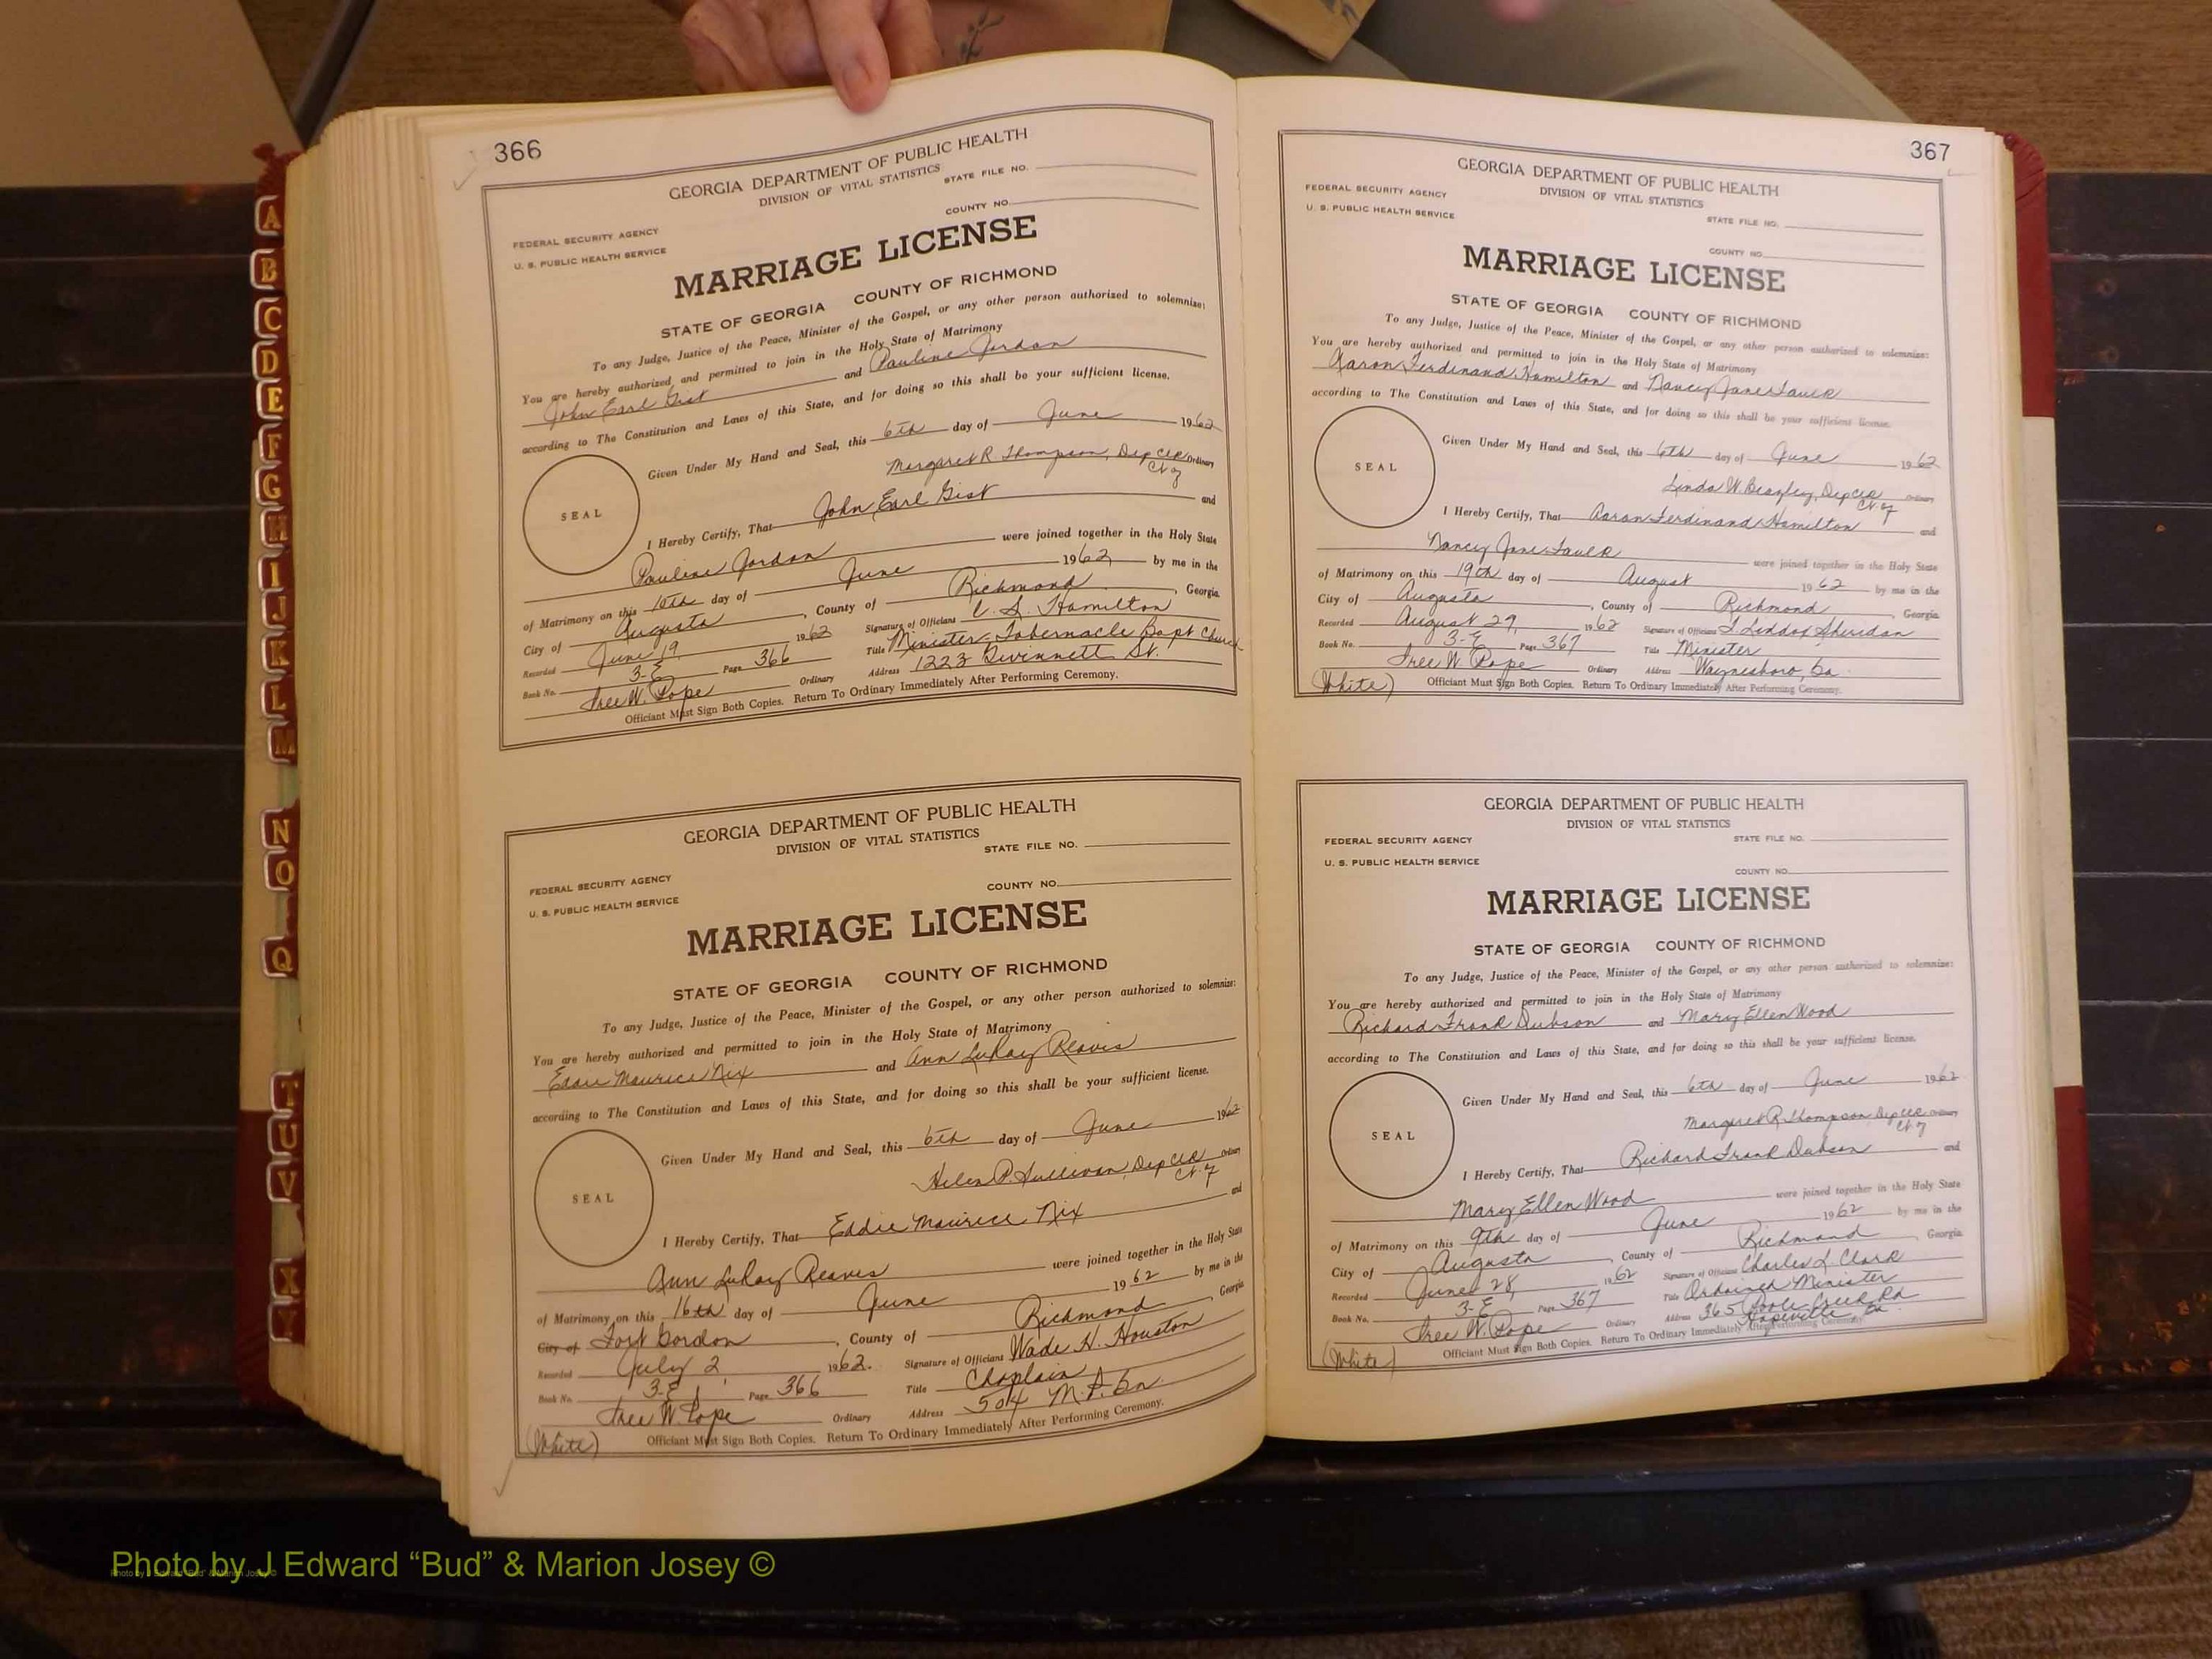 366
GEORGIA DEPARTMENT OF PUBLIC HEALTH
DIVISION OF VITAL STATISTICS
STATE FILE NO.
COUNTY NO.
FEDERAL SECURITY AGENCY
U. S. PUBLIC HEALTH SERVICE
MARRIAGE LICENSE
STATE OF GEORGIA COUNTY OF RICHMOND
To any Judge, Justice of the Peace, Minister of the Gospel, or any other person authorized to solemnize:
You are hereby authorized and permitted to join in the Holy State of Matrimony
John Earl Gist and Pauline Jordan
according to The Constitution and Laws of this State, and for doing so this shall be your sufficient license.
Given Under My Hand and Seal, this 6th day of June 1962
Margaret R. Thompson, Dep Clk Ordinary
Ct. of
SEAL
I Hereby Certify, That John Earl Gist and
Pauline Jordan were joined together in the Holy State
of Matrimony on this 10th day of June 1962 by me in the
City of Augusta, County of Richmond, Georgia.
Recorded June 19, 1962 Signature of Officiant Hamilton
Book No. 3-E Page 366 Title Minister-Tabernacle Bapt Church
Free W. Pope Ordinary Address 1223 Gwinnett St.
Officiant Must Sign Both Copies. Return To Ordinary Immediately After Performing Ceremony.
GEORGIA DEPARTMENT OF PUBLIC HEALTH
DIVISION OF VITAL STATISTICS
STATE FILE NO.
COUNTY NO.
FEDERAL SECURITY AGENCY
U. S. PUBLIC HEALTH SERVICE
MARRIAGE LICENSE
STATE OF GEORGIA COUNTY OF RICHMOND
To any Judge, Justice of the Peace, Minister of the Gospel, or any other person authorized to solemnize:
You are hereby authorized and permitted to join in the Holy State of Matrimony
Eddie Maurice Nix and Ann LuRay Reaves
according to The Constitution and Laws of this State, and for doing so this shall be your sufficient license.
Given Under My Hand and Seal, this 6th day of June 1962
Helen P. Sullivan, Dep Clk Ordinary
Ct. of
SEAL
I Hereby Certify, That Eddie Maurice Nix and
Ann LuRay Reaves were joined together in the Holy State
of Matrimony on this 16th day of June 1962 by me in the
City of Fort Gordon, County of Richmond Georgia
Recorded July 2, 1962. Signature of Officiant Wade H. Houston
Book No. 3-E Page 366 Title Chaplain
Free W. Pope Ordinary Address 504 M.P. Bn.
(White) Officiant Must Sign Both Copies. Return To Ordinary Immediately After Performing Ceremony.
367
GEORGIA DEPARTMENT OF PUBLIC HEALTH
DIVISION OF VITAL STATISTICS
FEDERAL SECURITY AGENCY
U. S. PUBLIC HEALTH SERVICE
STATE FILE NO.
COUNTY NO.
MARRIAGE LICENSE
STATE OF GEORGIA COUNTY OF RICHMOND
To any Judge, Justice of the Peace, Minister of the Gospel, or any other person authorized to solemnize:
You are hereby authorized and permitted to join in the Holy State of Matrimony
Aaron Ferdinand Hamilton and Nancy Jane Faulk
according to The Constitution and Laws of this State, and for doing so this shall be your sufficient license.
Given Under My Hand and Seal, this 6th day of June 1962
Linda W. Beazley, Dep Clk Ordinary
Ct. of
SEAL
I Hereby Certify, That Aaron Ferdinand Hamilton and
Nancy Jane Faulk were joined together in the Holy State
of Matrimony on this 19th day of August 1962 by me in the
City of Augusta, County of Richmond, Georgia.
Recorded August 29, 1962 Signature of Officiant Sheridan
Book No. 3-E Page 367 Title Minister
Free W. Pope Ordinary Address Waynesboro, Ga.
(White) Officiant Must Sign Both Copies. Return To Ordinary Immediately After Performing Ceremony.
GEORGIA DEPARTMENT OF PUBLIC HEALTH
DIVISION OF VITAL STATISTICS
STATE FILE NO.
FEDERAL SECURITY AGENCY
U. S. PUBLIC HEALTH SERVICE
COUNTY NO.
MARRIAGE LICENSE
STATE OF GEORGIA COUNTY OF RICHMOND
To any Judge, Justice of the Peace, Minister of the Gospel, or any other person authorized to solemnize:
You are hereby authorized and permitted to join in the Holy State of Matrimony
Richard Frank Dubson and Mary Ellen Wood
according to The Constitution and Laws of this State, and for doing so this shall be your sufficient license.
Given Under My Hand and Seal, this 6th day of June 1962
Margaret R. Thompson, Dep Clk Ordinary
Ct. of
SEAL
I Hereby Certify, That Richard Frank Dubson and
Mary Ellen Wood were joined together in the Holy State
of Matrimony on this 9th day of June 1962 by me in the
City of Augusta, County of Richmond, Georgia
Recorded June 28, 1962 Signature of Officiant Charles L. Clark
Book No. 3-E Page 367 Title Ordained Minister
Free W. Pope Ordinary Address 365 Poole Creek Rd
Hapeville, Ga.
(White) Officiant Must Sign Both Copies. Return To Ordinary Immediately After Performing Ceremony.
A
B
C
D
E
F
G
H
I
J
K
L
M
N
O
Q
T
U
V
X
Y
Photo by J Edward “Bud” & Marion Josey ©
Photo by J Edward "Bud" & Marion Josey ©